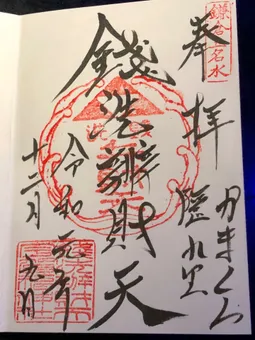 鎌倉名水
奉拝
かまくら
隠れ里
銭洗辨財天
令和元年
十二月
九日